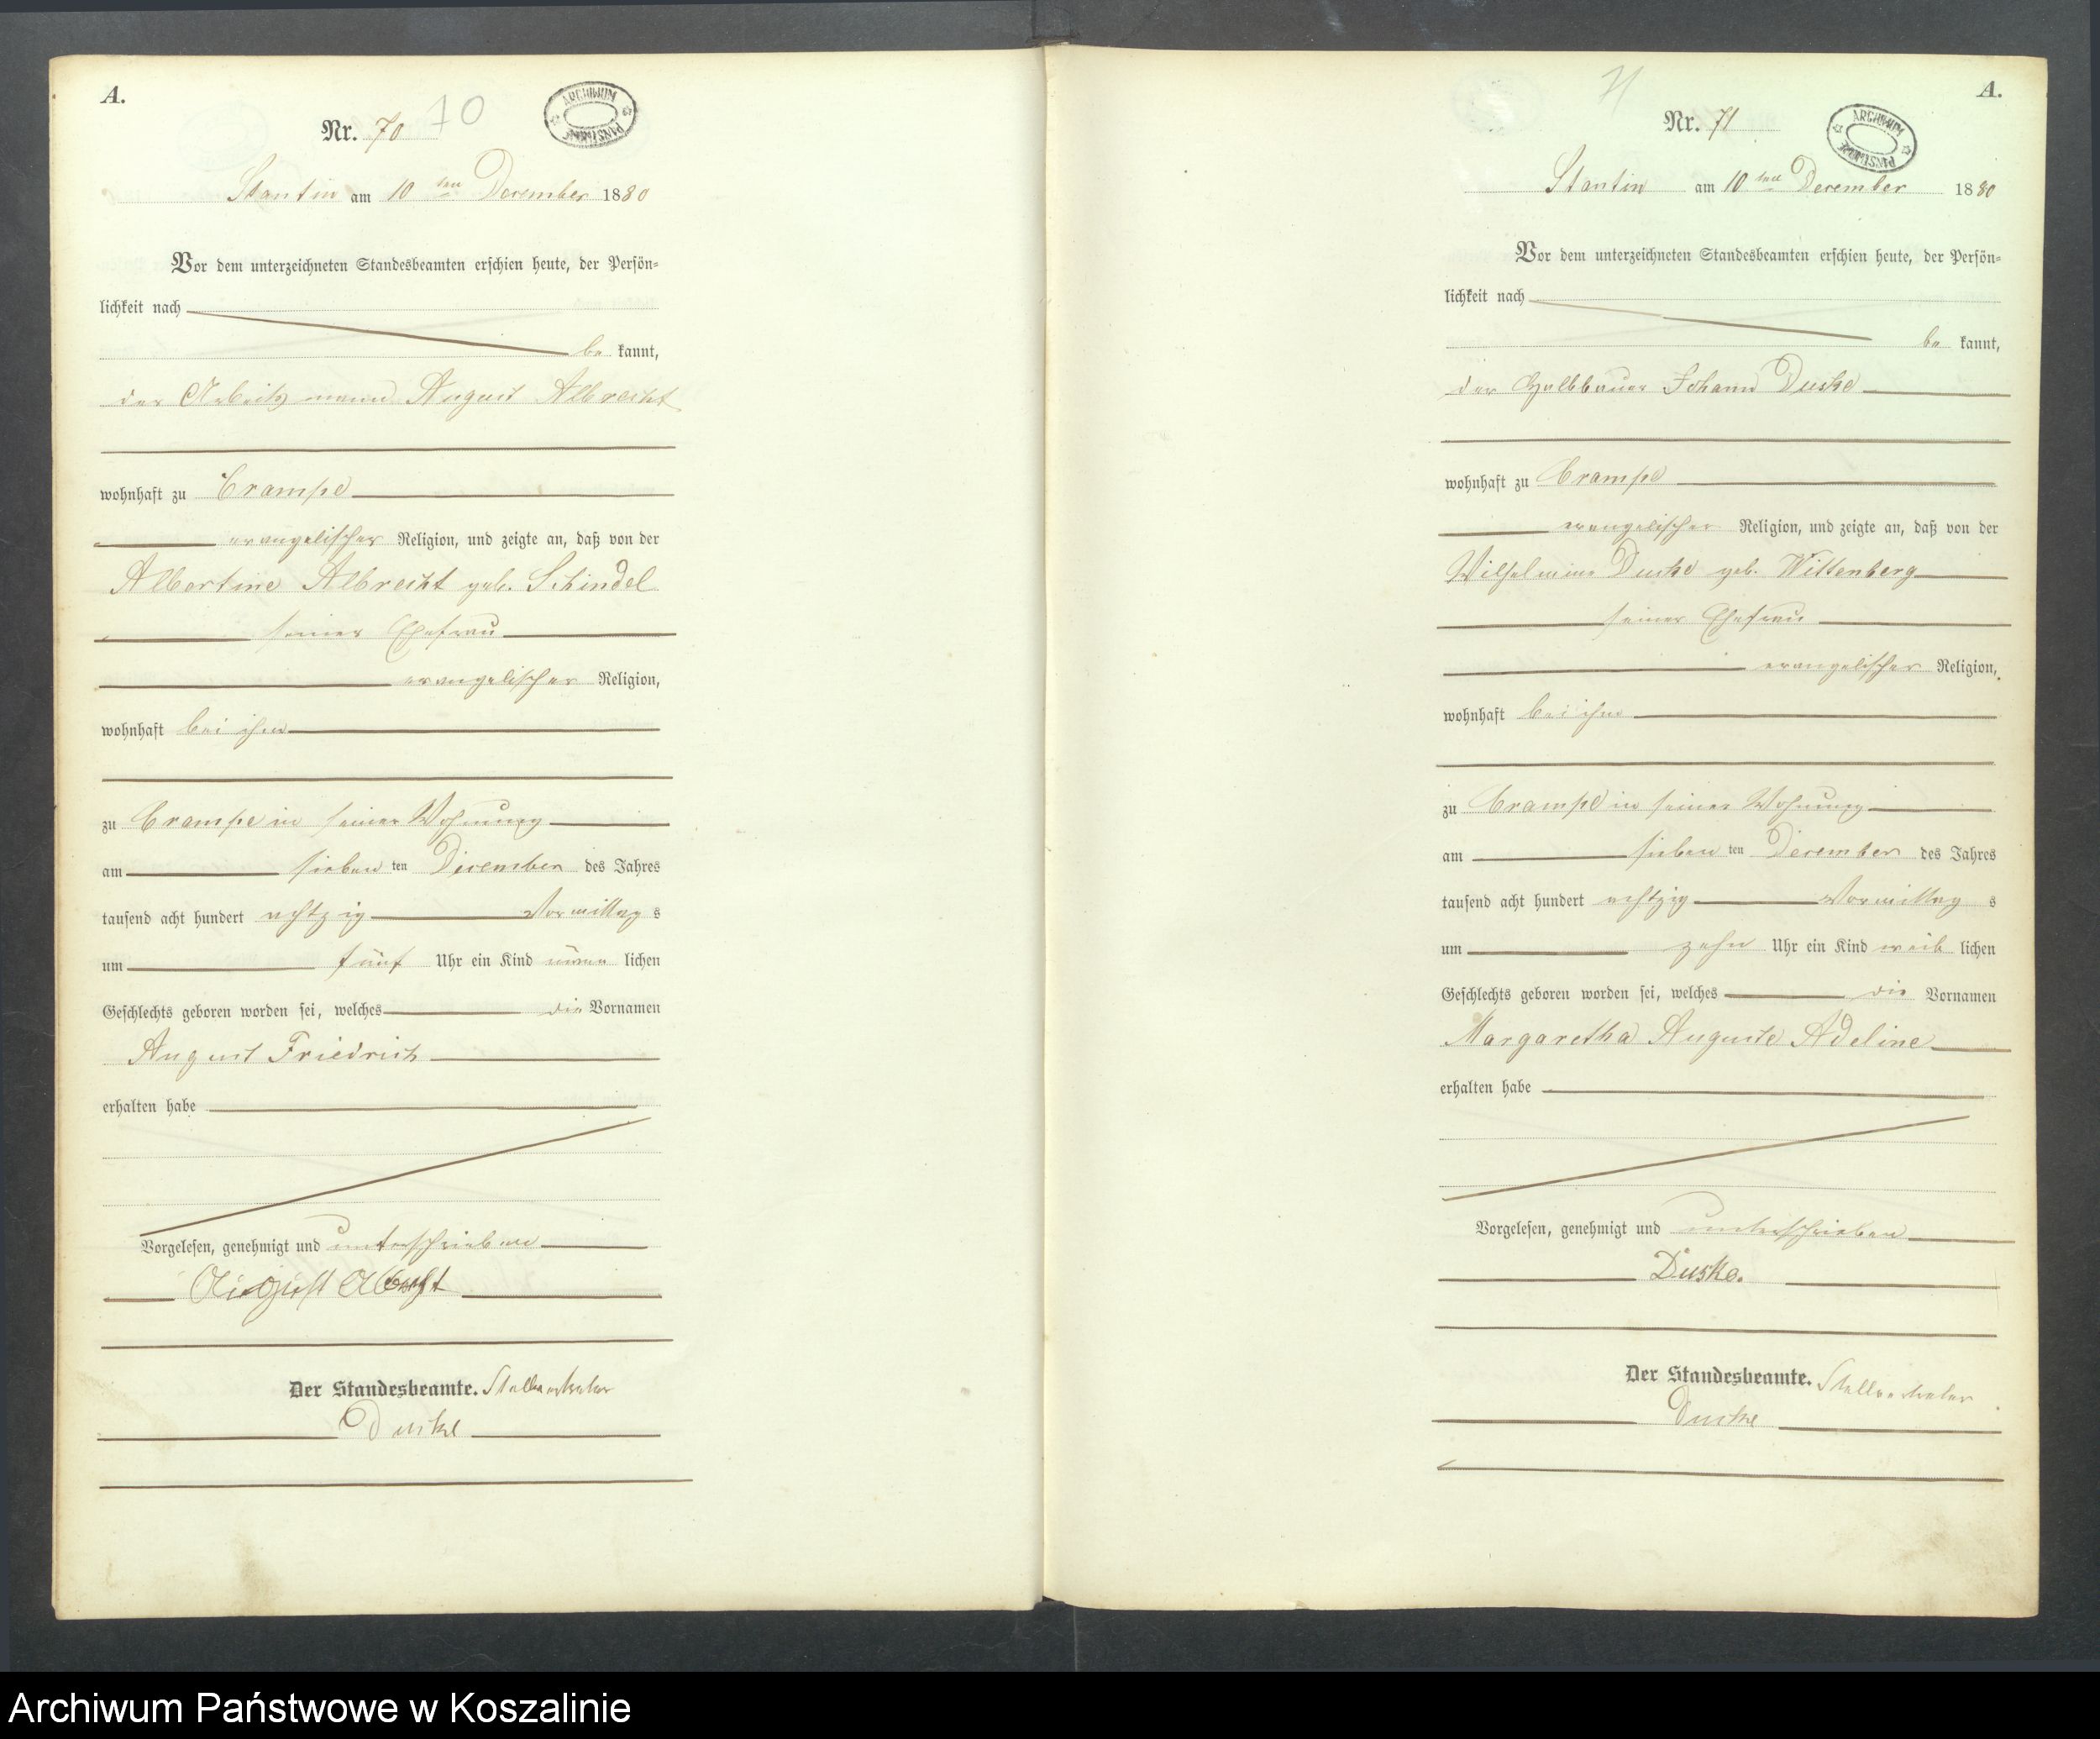 A.
Nr. 70
70
ARCHIWUM PAŃSTWOWE
Stantin am 10 ten December 1880
Vor dem unterzeichneten Standesbeamten erschien heute, der Persön=
lichkeit nach
be kannt,
der Arbeitsmann August Albrecht
wohnhaft zu Crampe
evangelischer Religion, und zeigte an, daß von der
Albertine Albrecht geb. Schindel
seiner Ehefrau
evangelischer Religion,
wohnhaft bei ihm
zu Crampe in seiner Wohnung
am sieben ten December des Jahres
tausend acht hundert achtzig Vormittag s
um fünf Uhr ein Kind männ lichen
Geschlechts geboren worden sei, welches die Vornamen
August Friedrich
erhalten habe
Vorgelesen, genehmigt und unterschrieben
August Albrecht
Der Standesbeamte. Stellvertreter
Duske
A.
71
Nr. 71
ARCHIWUM PAŃSTWOWE
Stantin am 10 ten December 1880
Vor dem unterzeichneten Standesbeamten erschien heute, der Persön=
lichkeit nach
be kannt,
der Halbbauer Johann Duske
wohnhaft zu Crampe
evangelischer Religion, und zeigte an, daß von der
Wilhelmine Duske geb. Wittenberg
seiner Ehefrau
evangelischer Religion,
wohnhaft bei ihm
zu Crampe in seiner Wohnung
am sieben ten December des Jahres
tausend acht hundert achtzig Vormittag s
um zehn Uhr ein Kind weib lichen
Geschlechts geboren worden sei, welches die Vornamen
Margaretha Auguste Adeline
erhalten habe
Vorgelesen, genehmigt und unterschrieben
Duske.
Der Standesbeamte. Stellvertreter
Duske
Archiwum Państwowe w Koszalinie